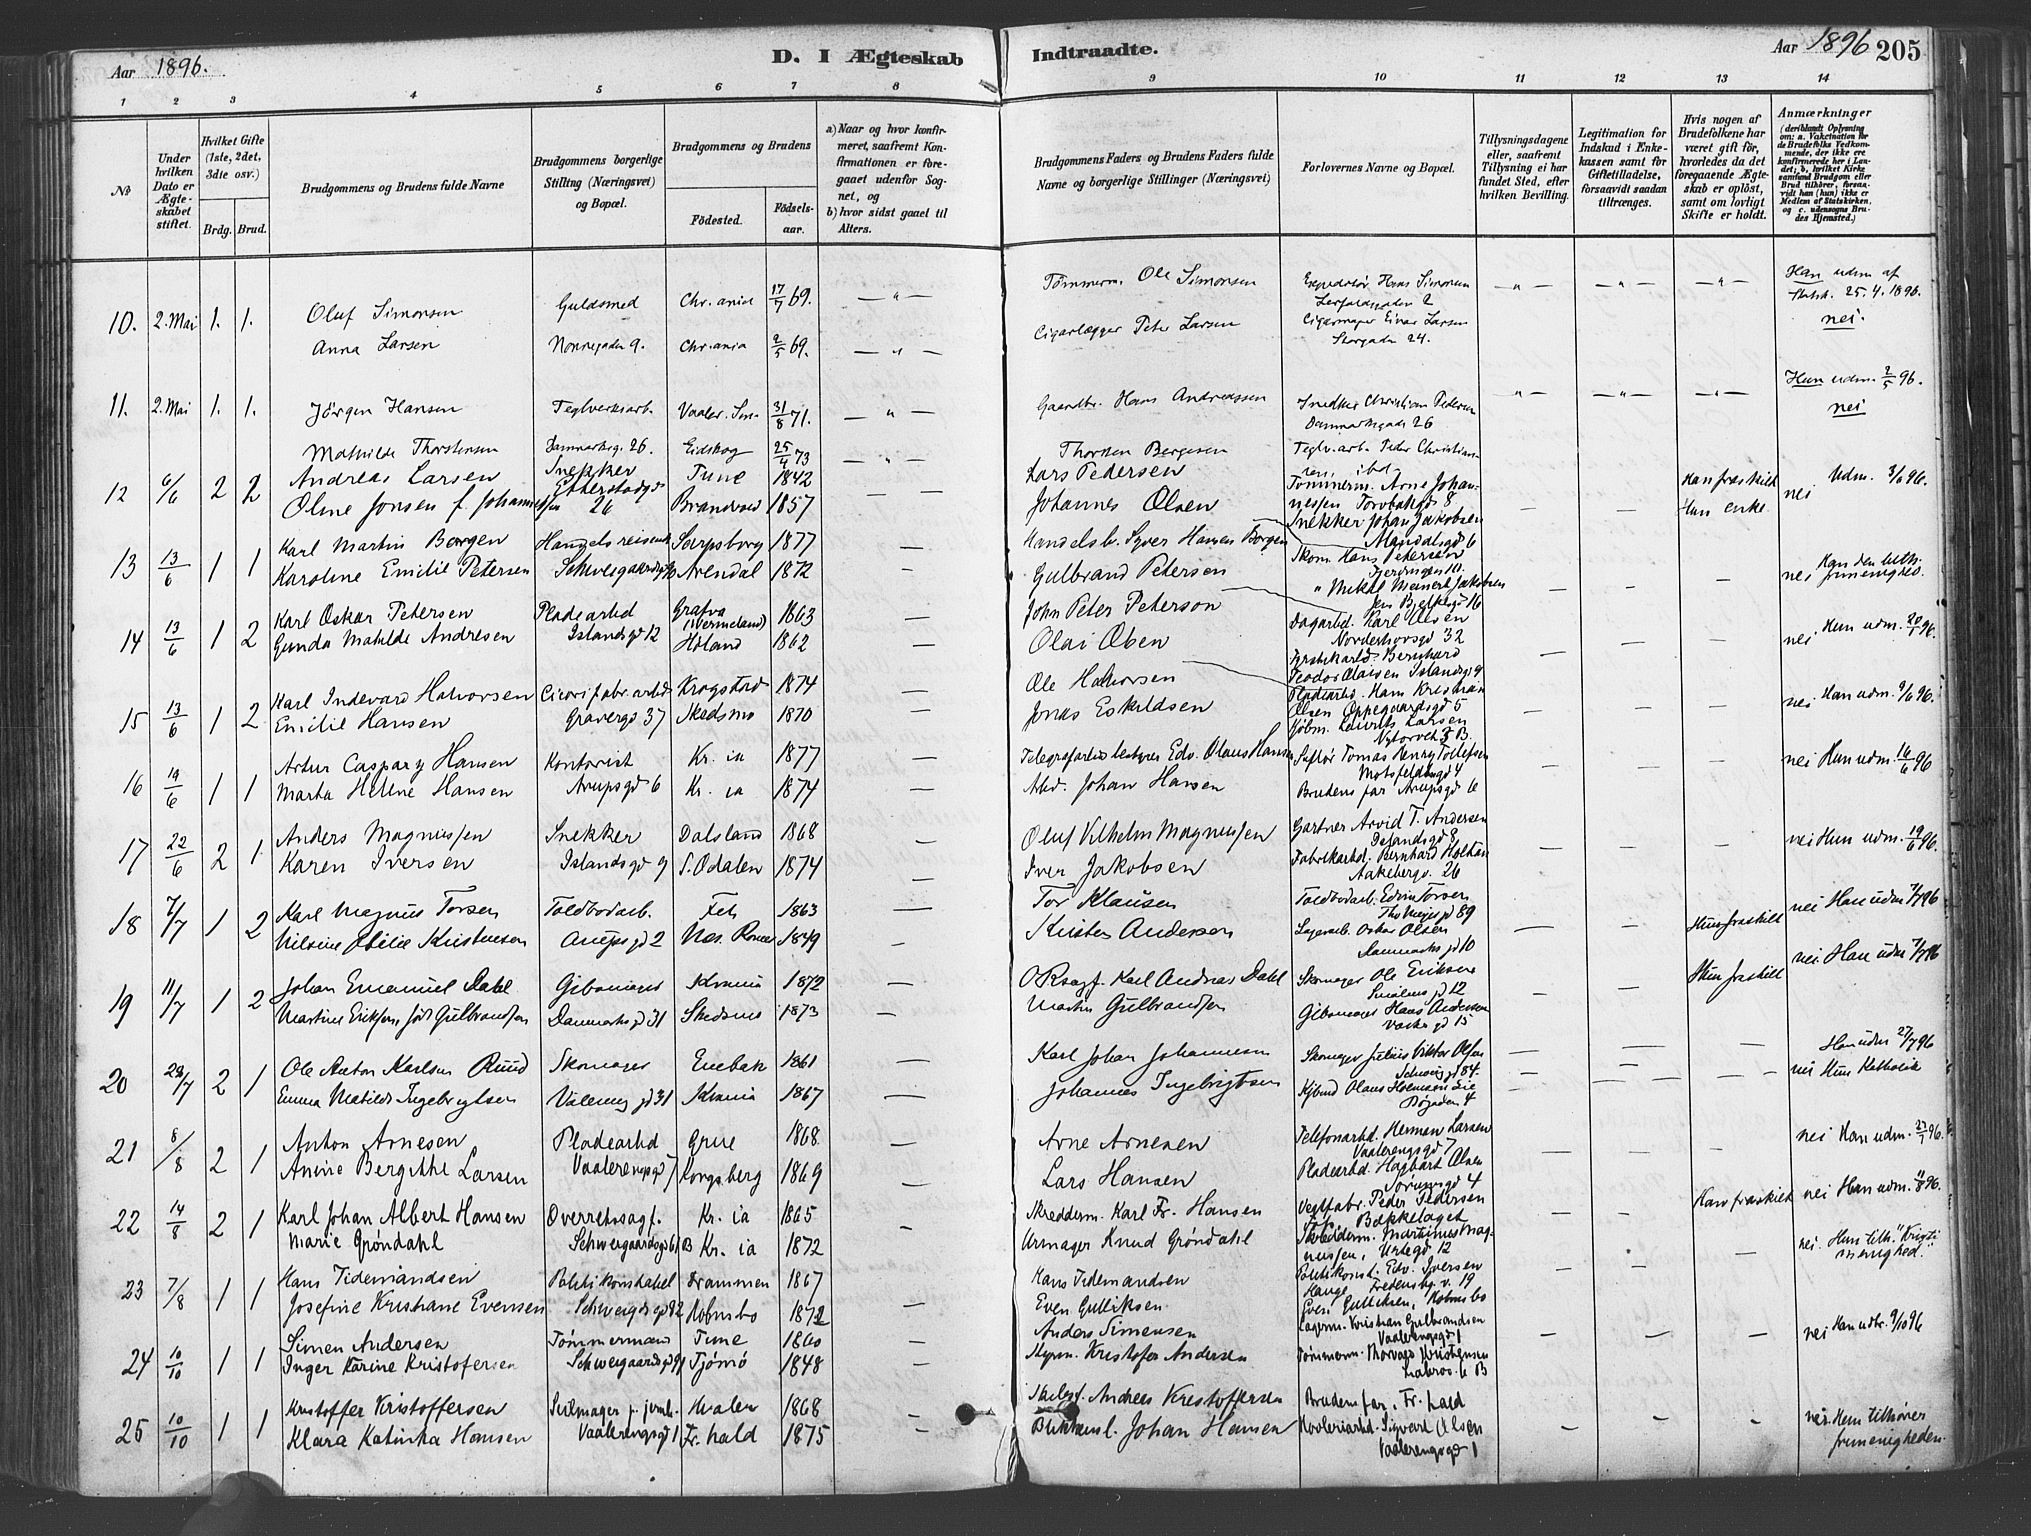 Aar 1896.
D. I Ægteskab Indtraadte.
Aar 1896 205
1 2 3 4 5 6 7 8 9 10 11 12 13 14
No
Under hvilken Dato er Ægteskabet stiftet.
Hvilket Gifte (1ste, 2det, 3die osv.)
Brdg. Brud.
Brudgommens og Brudens fulde Navne
Brudgommens borgerlige Stilling (Næringsvei) og Bopæl.
Brudgommens og Brudens
Födested. Födselsaar.
a) Naar og hvor konfirmeret, saafremt Konfirmationen er foregaaet udenfor Sognet, og
b) hvor sidst gaaet til Alters.
Brudgommens Faders og Brudens Faders fulde Navne og borgerlige Stillinger (Næringsvei)
Forlovernes Navne og Bopæl.
Tillysningsdagene eller, saafremt Tillysning ei har fundet Sted, efter hvilken Bevilling.
Legitimation for Indskud i Enkekassen samt for Giftetilladelse, forsaavidt saadan tiltrænges.
Hvis nogen af Brudefolkene har været gift för, hvorledes da det foregaaende Ægteskab er oplöst, samt om lovligt Skifte er holdt.
Anmærkninger
(deriblandt Oplysning om: a. Vakcination for de Brudefolks Vedkommende, der ikke ere konfirmerede her i Landet; b, hvilket Kirkesamfund Brudgom eller Brud tilhörer, forsaavidt han (hun) ikke er Medlem af Statskirken, og c. udensogns Brudes Hjemsted.)
10. 2. Mai 1. 1. Oluf Simonsen Guldsmed Chr.ania 17/7 69. — „ — Tömmerm. Ole Simonsen Expeditör Hans Simonsen — „ — — „ — — „ — Han udm. af
25.4.1896.
Anna Larsen Nonnegaden 9. Chr.ania 2/5 69. — „ — Cigarlægger Peter Larsen Cigarmager Einar Larsen nei.
Storgaden 24.
11. 2. Mai 1. 1. Jörgen Hansen Teglverksarb. Vaaler. Sm. 31/8 71. — „ — Gaardbr. Hans Andreassen Snedker Christian Pedersen — „ — — „ — — „ — Han udm. 2/5 96.
Danmarksgade 26 nei
Mathilde Thorstensen Danmarksg. 26. Eidskog 25/4 73 — „ — Thorsten Bergesen Teglv.arb. Peder Christiansen, ibd
12 6/6 2 2 Andreas Larsen Snekker Tune 1842 Lars Pedersen Tömmerm. Arne Johannessen Torvbakgd 8 Han fraskilt nei Udm. 3/6 96.
Oline Jonsen f. Johannessen Etterstadgd 26 Brandvold 1857 Johannes Olsen Snekker Johan Jakobsen Hun enke
Mandalsgd 6
13 13/6 1 1 Karl Martin Borgen Handelsreisende Sarpsborg 1877 Handelsb. Syver Hansen Borgen Skom Hans Petersen nei Han den luth. frimenighed.
Karoline Emilie Petersen Arendal 1872 Gulbrand Petersen „ Mikal Meinert Jakobsen
Jens Bjelkesgd 16
14 13/6 1 2 Karl Oskar Petersen Pladearbd Grafva (Vermeland) 1863 John Peter Peterson Dagarbd. Karl Olsen nei Han udm. 20/5 96.
Gunda Matilde Andresen Islandsgd 12 Höland 1862 Olai Olsen Norderhovsgd 32
15 13/6 1 2 Karl Indevard Halvorsen Cicorifabr.arbd Krogstad 1874 Ole Halvorsen Pladearbd. Hans Kristian Olsen Oppegaardsgd 5 nei Han udm. 9/6 96.
Emilie Hansen Gravergd 37 Skedsmo 1870 Jonas Eskildsen Kjöbm. Lauritz Larsen
Nytorvet 3 B.
16 19/6 1 1 Artur Caspary Hansen Kontorist Kr. ia 1877 Edv. Olaus Hansen Tomas Henry Tollefsen nei Han udm. 16/6 96
Marta Helene Hansen Arupsgd 6 Kr. ia 1874 Arbd. Johan Hansen Brudens far Arupsgd 6
17 22/6 2 1 Anders Magnussen Snekker Dalsland 1868 Oluf Vilhelm Magnussen Gartner Arvid T. Andersen Islandsgd 8 nei Hun udm. 19/6 96.
Karen Iversen Islandsgd 9 S. Odalen 1874 Iver Jakobsen Fabrikarbd. Bernhard Holtan
Aakebergv. 26
18 7/7 1 2 Karl Magnus Torsen Toldbodarb. Fet 1863 Tor Klausen Toldbodarb. Edvin Torsen Hun fraskilt nei Han udm 7/7 96
Nilsine Otilie Kristensen Arupsgd 2 Næs. Romer 1849 Kristen Andersen Lagerarb. Oskar Olsen
Danmarks gd 10
19 11/7 1 2 Johan Emanuel Dahl Gibsmager Krania 1872 O.R.sagf. Karl Andreas Dahl Skomager Ole Eriksen Hun fraskilt nei Han udm 7/7 96
Martine Eriksen, född Gulbrandsen Danmarks gd 31 Skedsmo 1873 Martin Gulbrandsen Gibsmager Hans Andersen
20 29/7 2 1 Ole Anton Karlsen Ruud Skomager Enebak 1861 Karl Johan Johannesen Skomager Julius Viktor Olsen Han udm 27/7 96
Emma Matilde Ingebrigtsen Vålereng gd 31 Krania 1867 Johannes Ingebrigtsen nei Hun Katholik
21 8/8 2 1 Anton Arnesen Pladearbd Grue 1868 Arne Arnesen Telefonarbd. Herman Larsen Vaalerengsgd 7 nei Han udm. 27/7 96.
Anine Bergithe Larsen Vaalerengsgd 7 Kongsberg 1869 Lars Hansen Pladearbd. Hagbart Olsen
22 14/8 2 1 Karl Johan Albert Hansen Overretssagf. Kr. ia 1865 Skredderm. Karl Fr. Hansen Peder Pedersen Bækkelaget Han fraskilt nei Han udm. 11/8 96.
Marie Gröndahl Schweigaardsgd Kr. ia 1872 Urmager Knud Gröndahl Skredderm. Martinus Magnussen, Urtegd 12
23 7/8 1 1 Hans Tidemandsen Politikonstabel Drammen 1867 Hans Tidemandsen Politikonst. Edv. Iversen nei. Hun tilh. „Kristi menighed.“
Josefine Kristiane Evensen Schweigds gd 92 Holmsbo 1872 Even Gulliksen Even Gulliksen, Holmsbo
24 10/10 1 1 Simen Andersen Tömmermand Tune 1860 Anders Simensen Lagerm. Kristian Gulbrandsen Vaalerengsgd 1 nei Han udtr. 9/10 96
Inger Karine Kristofersen Schweigaardsgd 91 Tjömö 1848 Styrm. Kristofer Andersen Tömmerm. Thorvald Kristensen
25 10/10 1 1 Kristoffer Kristoffersen Hvaler 1868 Andreas Kristoffersen Brudens far, Fr. hald nei Hun tilhörer frimenigheden.
Klara Katinka Hansen Vaalerengsgd 1 Fr. hald 1875 Johan Hansen Sigvart Olsen
Vaalerengsgd 1